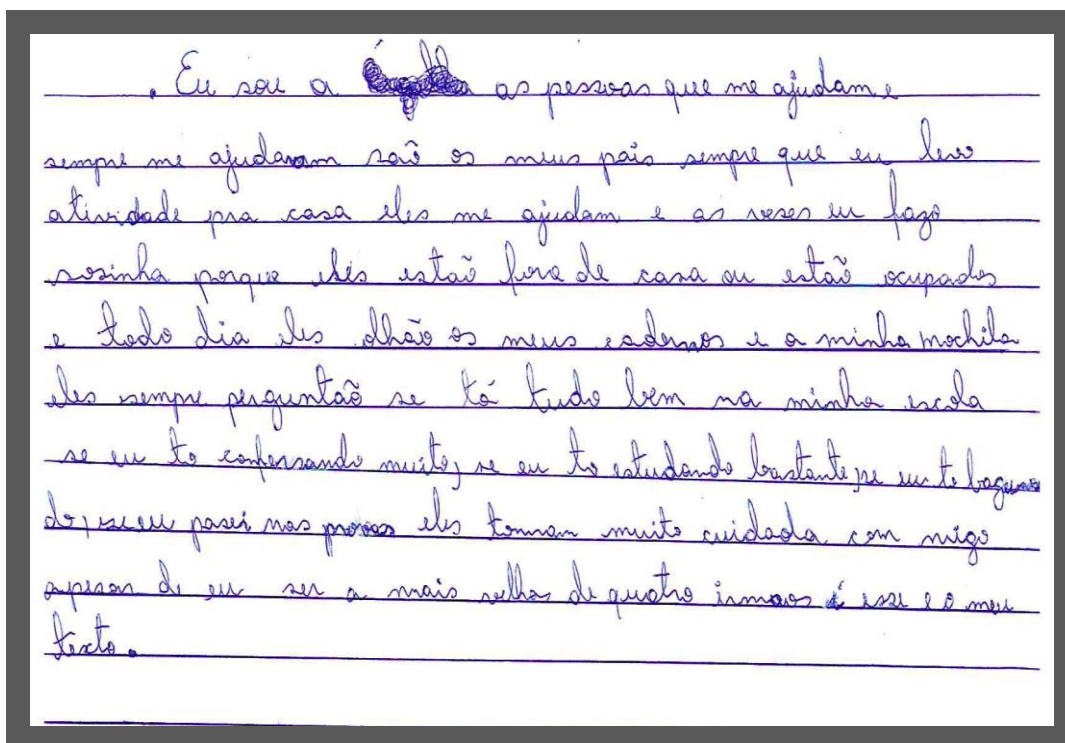 . Eu sou a as pessoas que me ajudam e
sempre me ajudaram saõ os meus pais sempre que eu levo
atividade pra casa eles me ajudam e as veses eu fazo
sosinha porque eles estaõ fora de casa ou estaõ ocupados
e todo dia eles olhão os meus cadernos e a minha mochila
eles sempre perguntaõ se tá tudo bem na minha escola
se eu to confersando muito, se eu to estudando bastante, se eu to bagunsan
do, se eu pasei nas provas eles tomnam muito cuidado com migo
apesar de eu ser a mais velha de quatro irmaos é esse e o meu
texto.